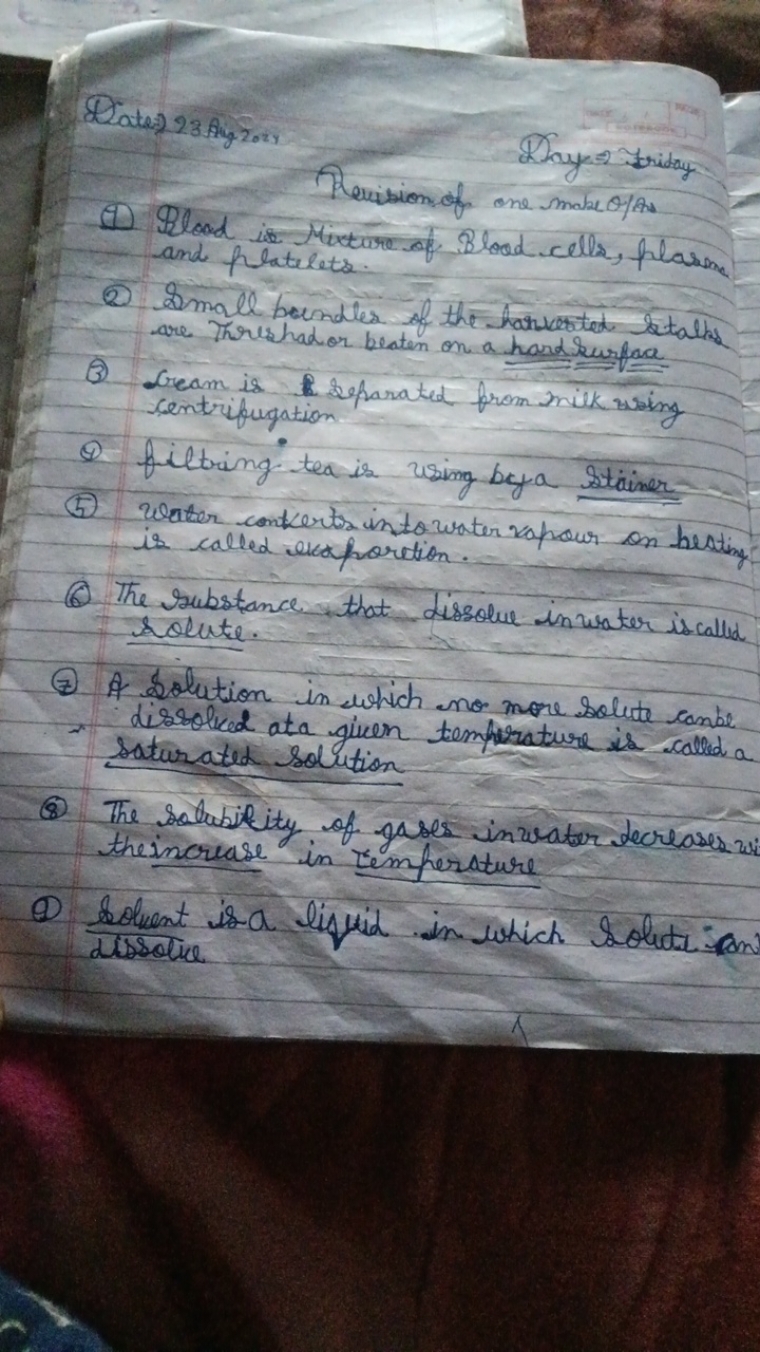 Date⇒ 23 Aug 2024
Day ⇒ Friday
Revision of one make Q/Ans
① Blood is Mixture of Blood cells, plasma
and platelets.
② Small boundles of the harvested stalks
are Threshad or beaten on a hard surface
③ Cream is separated from milk using
centrifugation
④ filtring tea is using by a Stainer
⑤ water converts into water vapour on heating
is called evaporetion.
⑥ The substance that dissolve in water is called
solute.
⑦ A Solution in which no more solute can be
dissolved at a given temperature is called a
saturated solution
⑧ The solubility of gases in water decreases wi
the increase in temperature
⑨ Solvent is a liquid in which Solute
dissolve